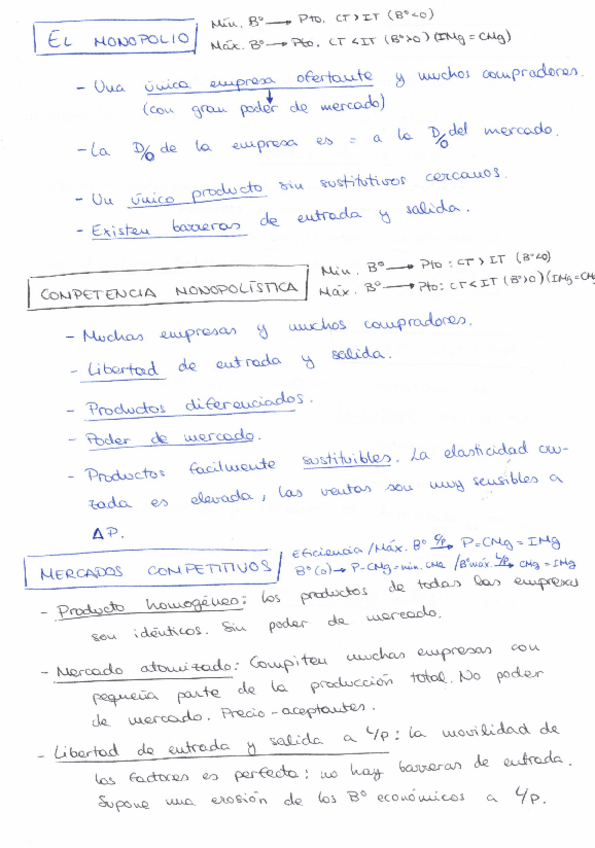 EL MONOPOLIO
Mín. Bº → Pto. CT > IT (Bº<0)
Máx. Bº → Pto. CT < IT (Bº>0) (IMg = CMg)
- Una única empresa ofertante y muchos compradores.
(con gran poder de mercado)
- La D/o de la empresa es = a la D/o del mercado.
- Un único producto sin sustitutivos cercanos.
- Existen barreras de entrada y salida.
COMPETENCIA MONOPOLÍSTICA
Min. Bº → Pto: CT > IT (Bº<0)
Máx. Bº → Pto: CT < IT (Bº>0) (IMg = CMg
- Muchas empresas y muchos compradores.
- Libertad de entrada y salida.
- Productos diferenciados.
- Poder de mercado.
- Productos facilmente sustituibles. La elasticidad cru-
zada es elevada, las ventas son muy sensibles a
ΔP.
MERCADOS COMPETITIVOS
Eficiencia / Máx. Bº c/p → P = CMg = IMg
Bº (0) → P - CMg = min. CMe / Bº máx. L/p → CMg = IMg
- Producto homogéneo: los productos de todas las empresas
son idénticos. Sin poder de mercado.
- Mercado atomizado: Compiten muchas empresas con
pequeña parte de la producción total. No poder
de mercado. Precio - aceptantes.
- Libertad de entrada y salida a L/p: la movilidad de
los factores es perfecta: no hay barreras de entrada.
Supone una erosión de los Bº económicos a L/p.